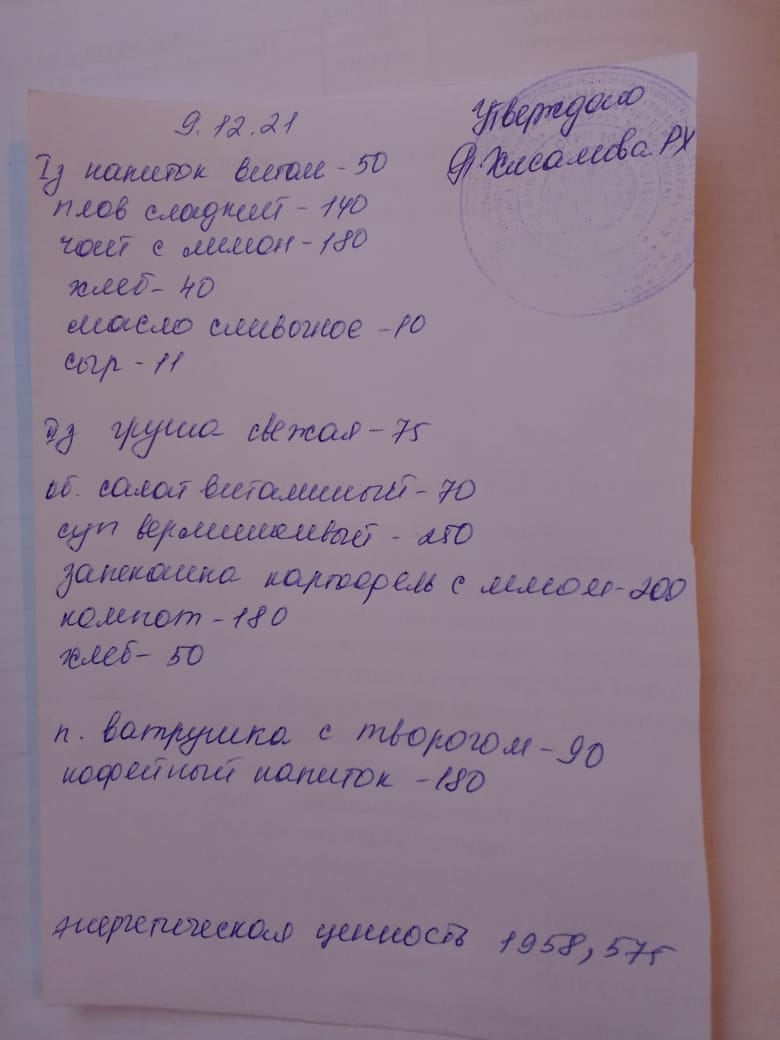 9.12.21
Утверждаю
Хисамова РХ
Iз напиток витам - 50
плов сладкий - 140
чай с лимон - 180
хлеб - 40
масло сливочное - 10
сыр - 11
IIз груша свежая - 75
об. салат витаминный - 70
суп вермишелевый - 250
запеканка картофель с мясом - 200
компот - 180
хлеб - 50
п. ватрушка с творогом - 90
кофейный напиток - 180
энергетическая ценность 1958,575